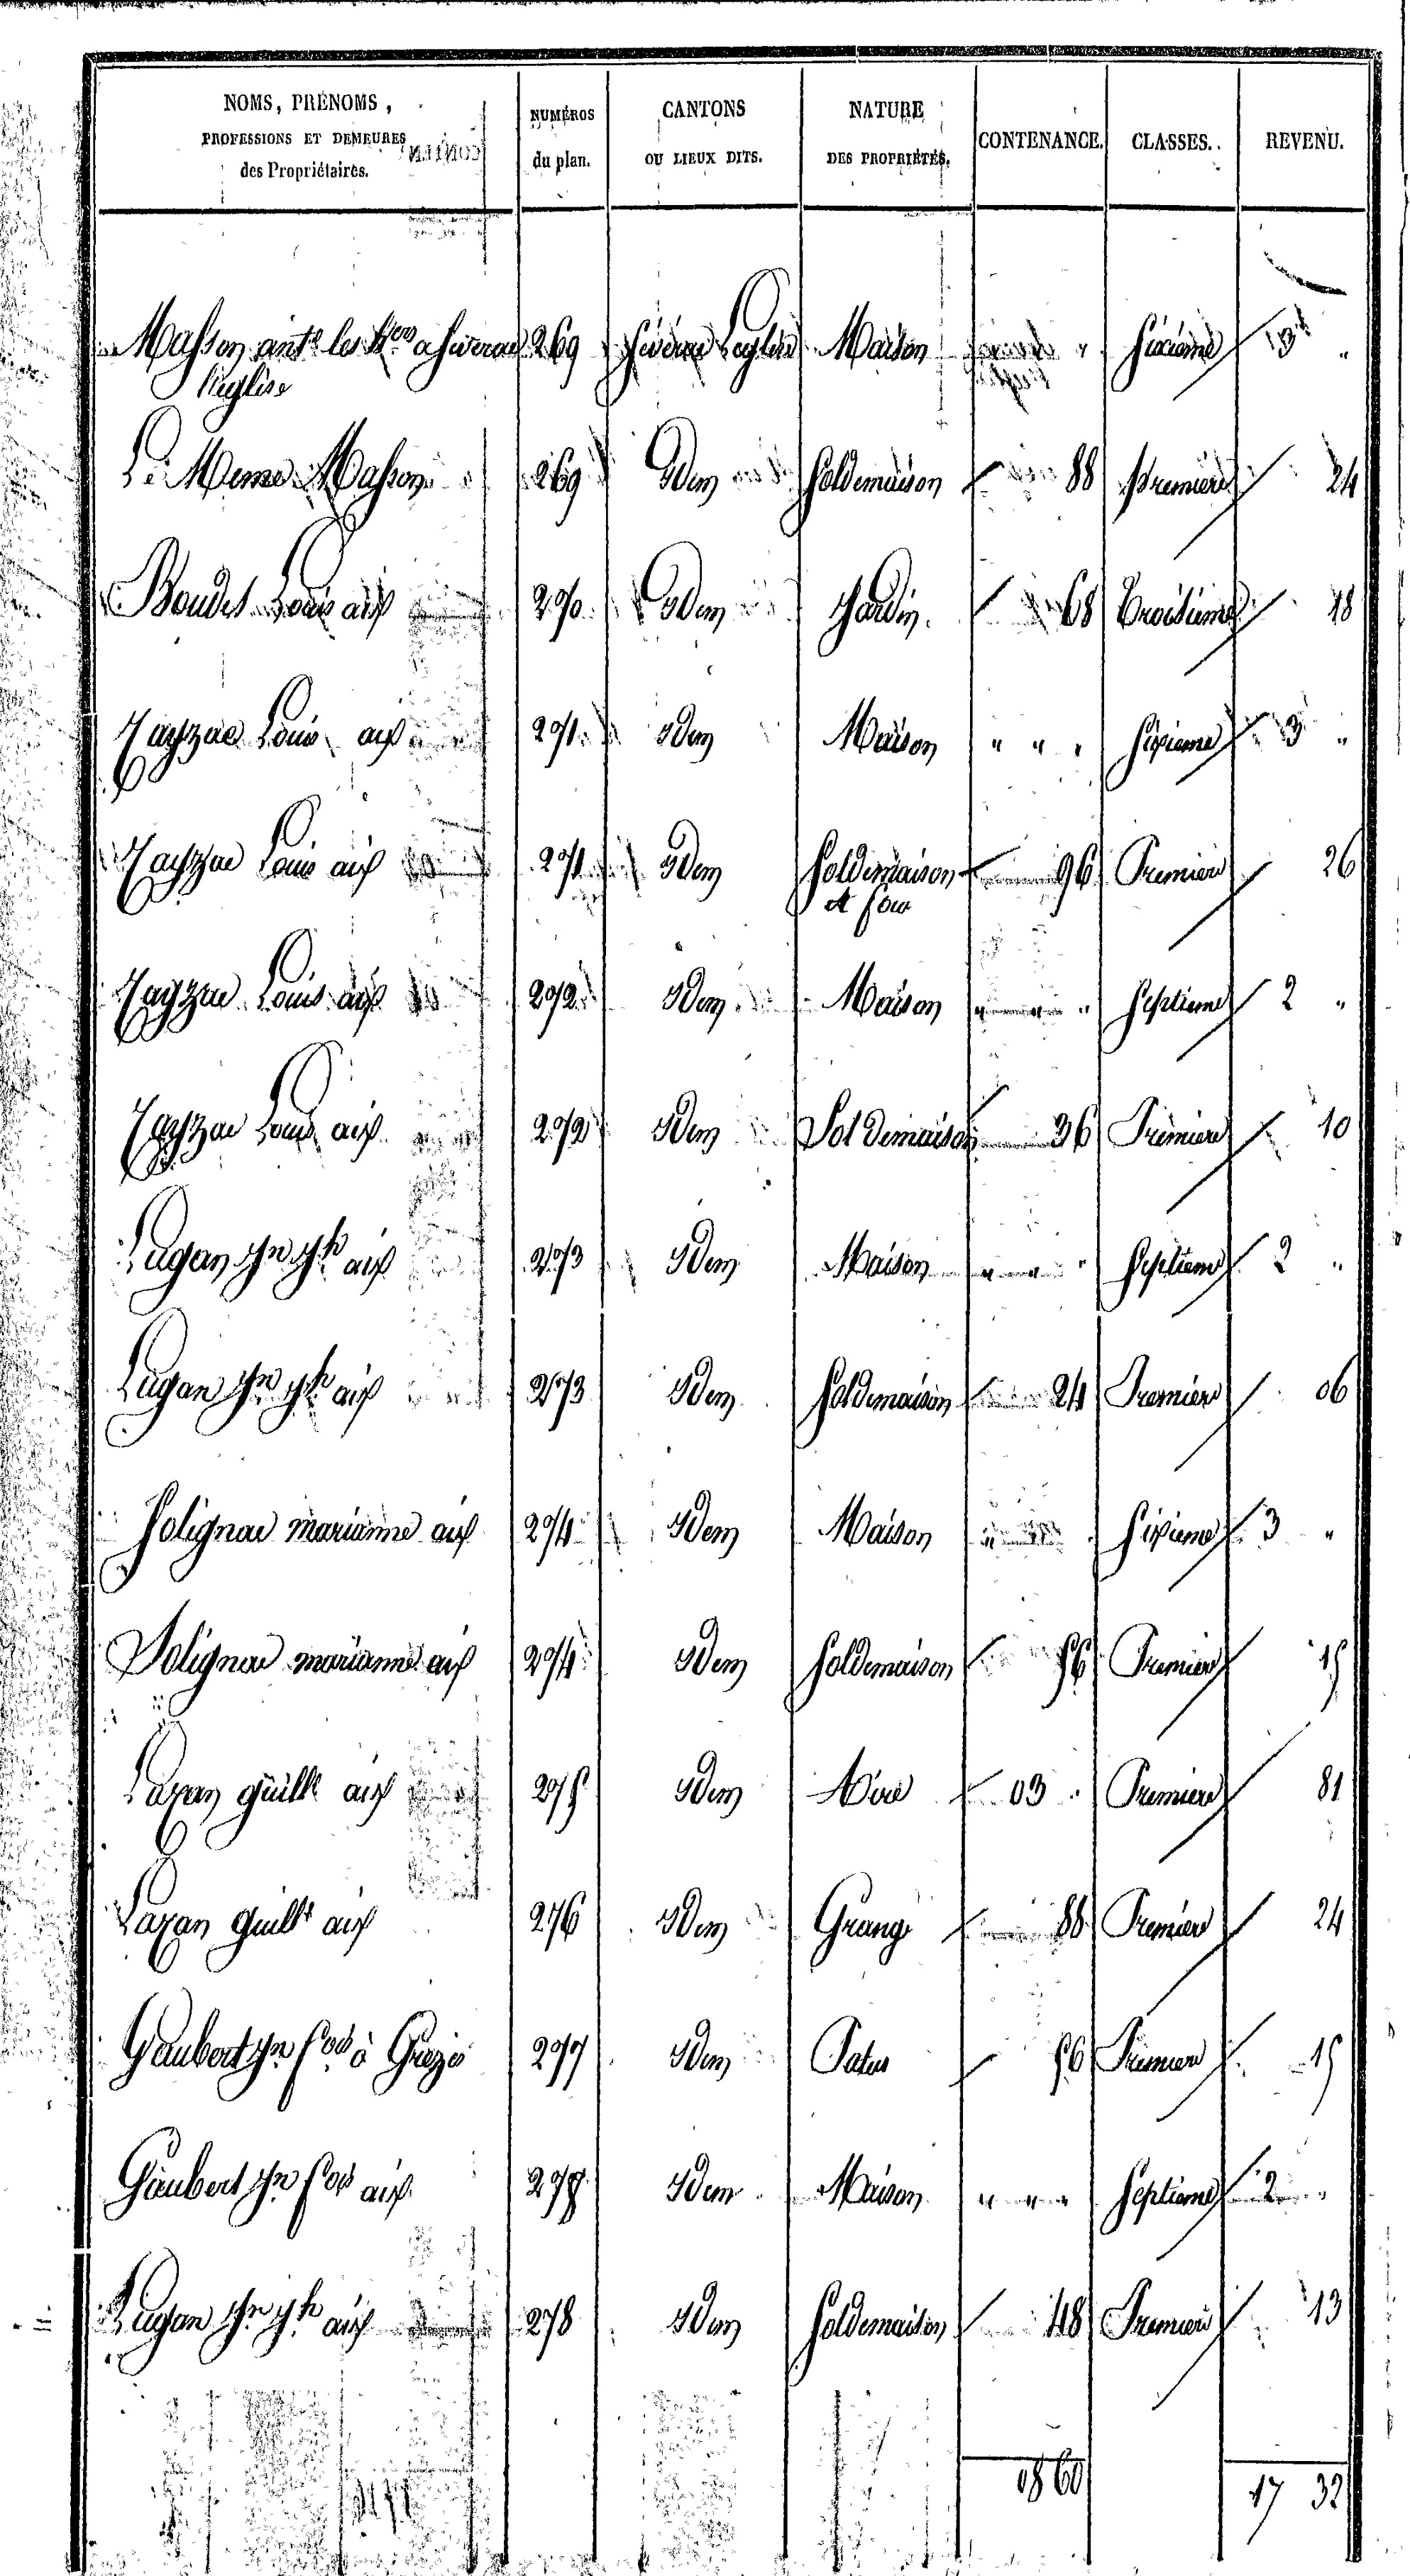 NOMS, PRÉNOMS, PROFESSIONS ET DEMEURES des Propriétaires. NUMÉROS du plan. CANTONS OU LIEUX DITS. NATURE DES PROPRIÉTÉS. CONTENANCE. CLASSES. REVENU.
Masson ant.e les h.ers a 269 Maison " Sixieme 3 "
l'église
Le Meme Masson 269 Idem Sol de maison 88 Premiere 24
Boudet Louis aux 270 Idem Jardin 68 Troisieme 18
Louis aux 271 Idem Maison " " " Sixieme 3 "
Louis aux 271 Idem Sol de maison 96 Premiere 26
et four
Louis aux 272 Idem Maison " " " Septieme 2 "
Louis aux 272 Idem Sol de maison 36 Premiere 10
Lugan Jn Jh aux 273 Idem Maison " " " Septieme 2 "
Lugan Jn Jh aux 273 Idem Sol de maison 24 Premiere 06
Solignac marianne aux 274 Idem Maison " Sixieme 3 "
Solignac marianne aux 274 Idem Sol de maison 56 Premiere 15
guill.e aux 275 Idem Aire 03 Premiere 81
guill.e aux 276 Idem Grange 88 Premiere 24
Gaubert Jn fois à 277 Idem Patus 56 Premiere 15
Gaubert Jn fois aux 278 Idem Maison " " " Septieme 2 "
Lugan Jn Jh aux 278 Idem Sol de maison 48 Premiere 13
8 60 17 32